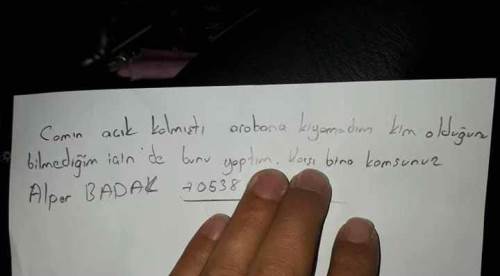 Camın açık kalmıştı arabana kıyamadım kim olduğunu
bilmediğim için de bunu yaptım. Karşı bina komşunuz
Alper BADAK →0538